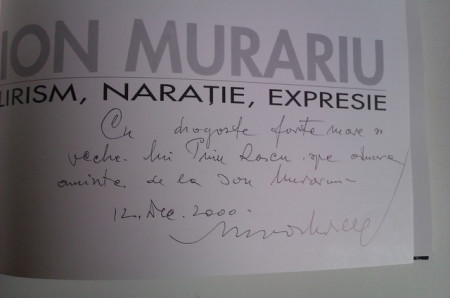 ION MURARIU
LIRISM, NARAȚIE, EXPRESIE
Cu dragoste foarte mare și
veche lui Puiu spre
aminte de la Ion Murariu
12. Dec. 2000.